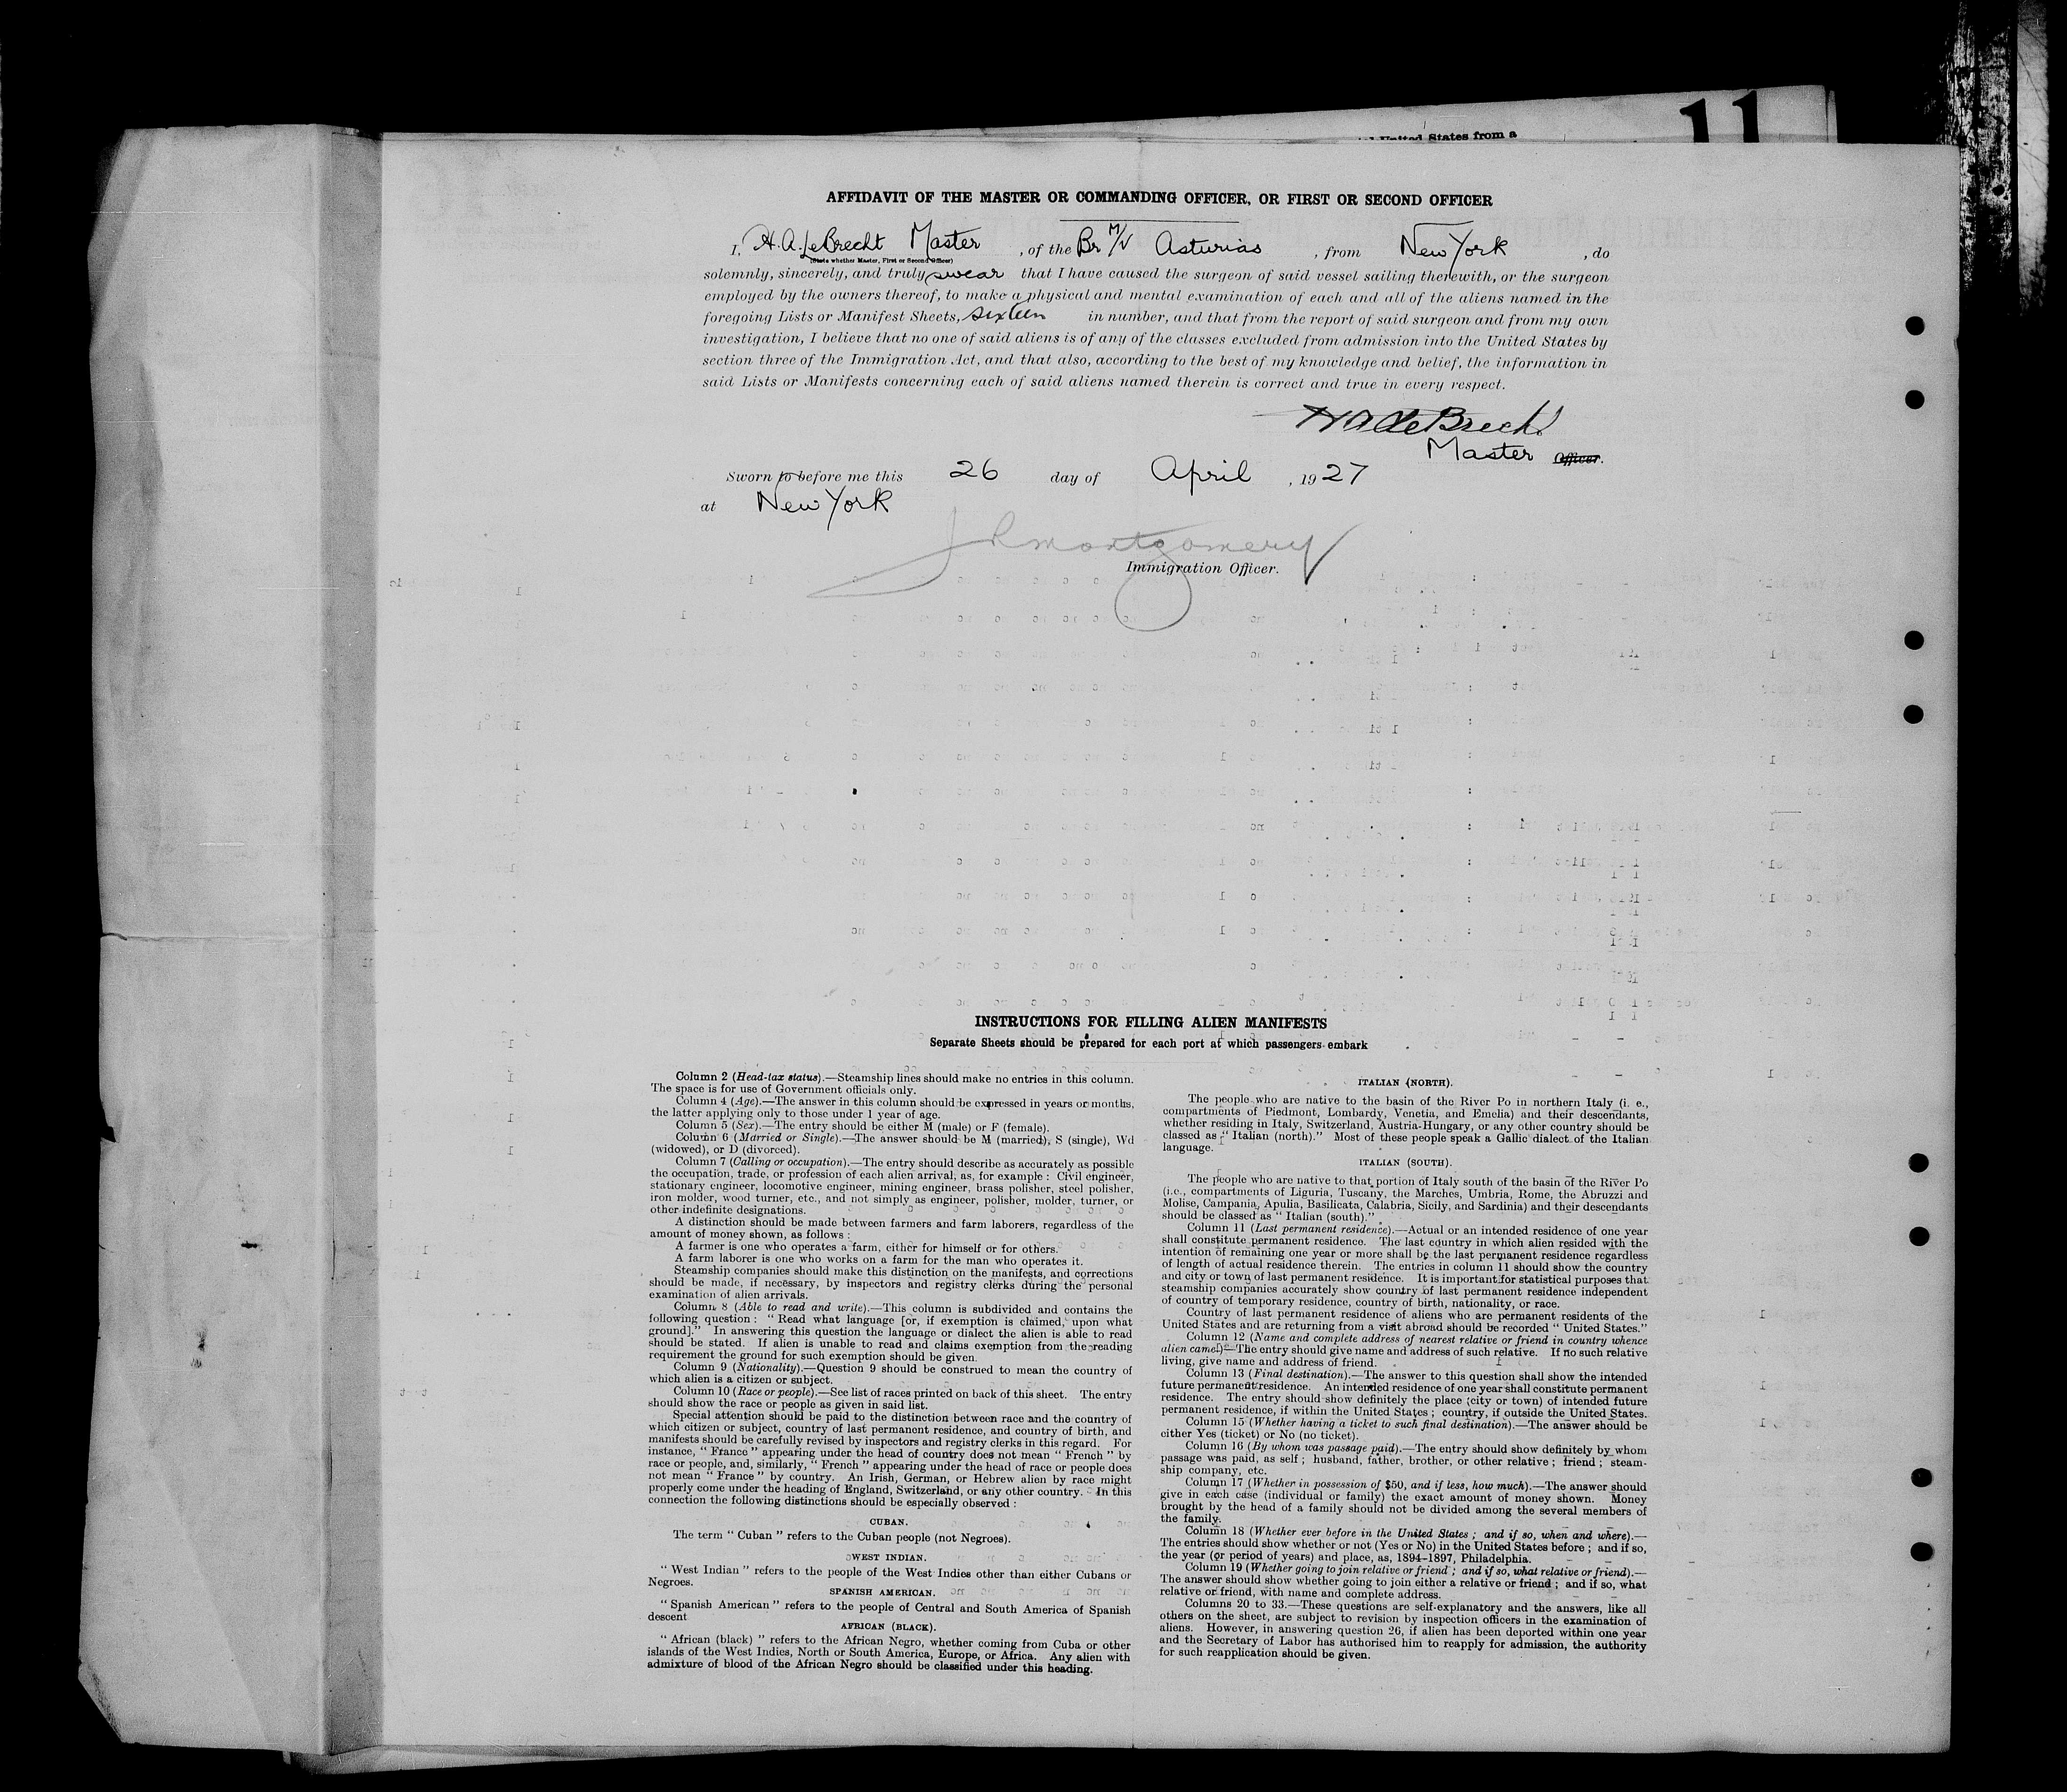 11
United States from a
AFFIDAVIT OF THE MASTER OR COMMANDING OFFICER, OR FIRST OR SECOND OFFICER
I, H. A. LeBrecht Master, of the Br M/V Asturias, from New York, do
(State whether Master, First or Second Officer)
solemnly, sincerely, and truly swear that I have caused the surgeon of said vessel sailing therewith, or the surgeon
employed by the owners thereof, to make a physical and mental examination of each and all of the aliens named in the
foregoing Lists or Manifest Sheets, sixteen in number, and that from the report of said surgeon and from my own
investigation, I believe that no one of said aliens is of any of the classes excluded from admission into the United States by
section three of the Immigration Act, and that also, according to the best of my knowledge and belief, the information in
said Lists or Manifests concerning each of said aliens named therein is correct and true in every respect.
HALeBrecht
Master Officer.
Sworn to before me this 26 day of April, 1927
at New York
JRMontgomery
Immigration Officer.
INSTRUCTIONS FOR FILLING ALIEN MANIFESTS
Separate Sheets should be prepared for each port at which passengers embark
Column 2 (Head-tax status).—Steamship lines should make no entries in this column.
The space is for use of Government officials only.
Column 4 (Age).—The answer in this column should be expressed in years or months,
the latter applying only to those under 1 year of age.
Column 5 (Sex).—The entry should be either M (male) or F (female).
Column 6 (Married or Single).—The answer should be M (married), S (single), Wd
(widowed), or D (divorced).
Column 7 (Calling or occupation).—The entry should describe as accurately as possible
the occupation, trade, or profession of each alien arrival, as, for example : Civil engineer,
stationary engineer, locomotive engineer, mining engineer, brass polisher, steel polisher,
iron molder, wood turner, etc., and not simply as engineer, polisher, molder, turner, or
other indefinite designations.
A distinction should be made between farmers and farm laborers, regardless of the
amount of money shown, as follows :
A farmer is one who operates a farm, either for himself or for others.
A farm laborer is one who works on a farm for the man who operates it.
Steamship companies should make this distinction on the manifests, and corrections
should be made, if necessary, by inspectors and registry clerks during the personal
examination of alien arrivals.
Column 8 (Able to read and write).—This column is subdivided and contains the
following question : “ Read what language [or, if exemption is claimed, upon what
ground].” In answering this question the language or dialect the alien is able to read
should be stated. If alien is unable to read and claims exemption from the reading
requirement the ground for such exemption should be given.
Column 9 (Nationality).—Question 9 should be construed to mean the country of
which alien is a citizen or subject.
Column 10 (Race or people).—See list of races printed on back of this sheet. The entry
should show the race or people as given in said list.
Special attention should be paid to the distinction between race and the country of
which citizen or subject, country of last permanent residence, and country of birth, and
manifests should be carefully revised by inspectors and registry clerks in this regard. For
instance, “ France ” appearing under the head of country does not mean “ French ” by
race or people, and, similarly, “ French ” appearing under the head of race or people does
not mean “ France ” by country. An Irish, German, or Hebrew alien by race might
properly come under the heading of England, Switzerland, or any other country. In this
connection the following distinctions should be especially observed :
CUBAN.
The term “ Cuban ” refers to the Cuban people (not Negroes).
WEST INDIAN.
“ West Indian ” refers to the people of the West Indies other than either Cubans or
Negroes.
SPANISH AMERICAN.
“ Spanish American ” refers to the people of Central and South America of Spanish
descent
AFRICAN (BLACK).
“ African (black) ” refers to the African Negro, whether coming from Cuba or other
islands of the West Indies, North or South America, Europe, or Africa. Any alien with
admixture of blood of the African Negro should be classified under this heading.
ITALIAN (NORTH).
The people who are native to the basin of the River Po in northern Italy (i. e.,
compartments of Piedmont, Lombardy, Venetia, and Emelia) and their descendants,
whether residing in Italy, Switzerland, Austria-Hungary, or any other country should be
classed as “ Italian (north).” Most of these people speak a Gallic dialect of the Italian
language.
ITALIAN (SOUTH).
The people who are native to that portion of Italy south of the basin of the River Po
(i.e., compartments of Liguria, Tuscany, the Marches, Umbria, Rome, the Abruzzi and
Molise, Campania, Apulia, Basilicata, Calabria, Sicily, and Sardinia) and their descendants
should be classed as “ Italian (south).”
Column 11 (Last permanent residence).—Actual or an intended residence of one year
shall constitute permanent residence. The last country in which alien resided with the
intention of remaining one year or more shall be the last permanent residence regardless
of length of actual residence therein. The entries in column 11 should show the country
and city or town of last permanent residence. It is important for statistical purposes that
steamship companies accurately show country of last permanent residence independent
of country of temporary residence, country of birth, nationality, or race.
Country of last permanent residence of aliens who are permanent residents of the
United States and are returning from a visit abroad should be recorded “ United States.”
Column 12 (Name and complete address of nearest relative or friend in country whence
alien came).—The entry should give name and address of such relative. If no such relative
living, give name and address of friend.
Column 13 (Final destination).—The answer to this question shall show the intended
future permanent residence. An intended residence of one year shall constitute permanent
residence. The entry should show definitely the place (city or town) of intended future
permanent residence, if within the United States ; country, if outside the United States.
Column 15 (Whether having a ticket to such final destination).—The answer should be
either Yes (ticket) or No (no ticket).
Column 16 (By whom was passage paid).—The entry should show definitely by whom
passage was paid, as self ; husband, father, brother, or other relative ; friend ; steam-
ship company, etc.
Column 17 (Whether in possession of $50, and if less, how much).—The answer should
give in each case (individual or family) the exact amount of money shown. Money
brought by the head of a family should not be divided among the several members of
the family.
Column 18 (Whether ever before in the United States ; and if so, when and where).—
The entries should show whether or not (Yes or No) in the United States before ; and if so,
the year (or period of years) and place, as, 1894-1897, Philadelphia.
Column 19 (Whether going to join relative or friend ; and if so, what relative or friend).—
The answer should show whether going to join either a relative or friend ; and if so, what
relative or friend, with name and complete address.
Columns 20 to 33.—These questions are self-explanatory and the answers, like all
others on the sheet, are subject to revision by inspection officers in the examination of
aliens. However, in answering question 26, if alien has been deported within one year
and the Secretary of Labor has authorised him to reapply for admission, the authority
for such reapplication should be given.